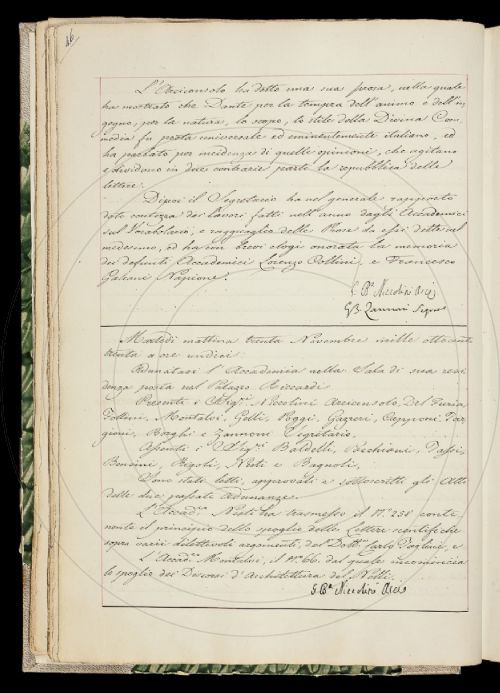 46
L'Arciconsolo ha detto una sua prosa, nella quale
ha mostrato che Dante per la tempra dell'animo e dell'in
gegno, per la natura, lo scopo, lo stile della Divina Com
media fu poeta universale ed eminentemente italiano, ed
ha parlato per incidenza di quelle opinioni, che agitano
e dividono in due contrarie parti la repubblica delle
lettere.
Dipoi il Segretario ha nel generale rapporto
dato contezza dei lavori fatti nell'anno dagli Accademici
sul Vocabolario, e ragguaglio delle Prose da essi dette nel
medesimo, ed ha con brevi elogi onorata la memoria
dei defunti Accademici Lorenzo Collini, e Francesco
Galeani Napione.
G. Ba. Niccolini Arcio
G.B. Zannoni Segro
Martedì mattina trenta Novembre mille ottocento
trenta a ore undici.
Adunatasi l'Accademia nella Sala di sua resi
denza posta nel Palazzo Riccardi
Presenti i SSigri. Niccolini Arciconsolo, Del Furia
Follini, Montalvi, Gelli, Poggi, Gazzeri, Capponi, Tar
gioni, Borghi e Zannoni Segretario.
Assenti i SSigri. Baldelli, Becchioni, Tassi,
Bencini, Rigoli, Nesti e Bagnoli,
Sono stati letti, approvati e sottoscritti gli Atti
delle due passate Adunanze.
L'Accadco. Nesti ha trasmesso il No. 258 conte
nente il principio dello spoglio delle Lettere scientifiche
sopra varii dilettevoli argomenti, del Dottr. Carlo Taglini, e
L'Accadco. Montalvi, il No. 66. dal quale incomincia
lo spoglio dei Discorsi d'Architettura del Nelli.
G. Ba. Niccolini Arcio